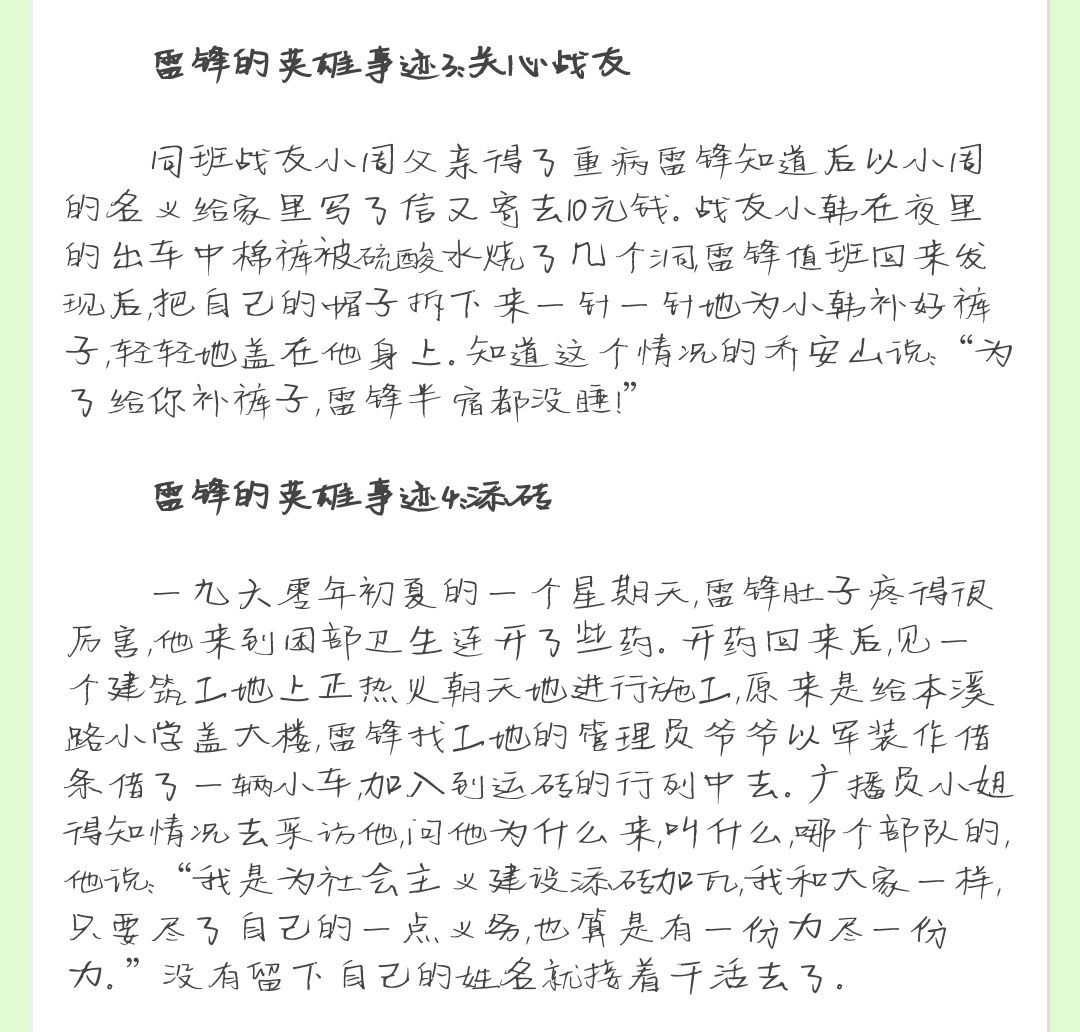 雷锋的英雄事迹3:关心战友
同班战友小周父亲得了重病雷锋知道后以小周
的名义给家里写了信又寄去10元钱。战友小韩在夜里
的出车中棉裤被硫酸水烧了几个洞,雷锋值班回来发
现后,把自己的帽子拆下来一针一针地为小韩补好裤
子,轻轻地盖在他身上。知道这个情况的乔安山说:“为
了给你补裤子,雷锋半宿都没睡!”
雷锋的英雄事迹4:添砖
一九六零年初夏的一个星期天,雷锋肚子疼得很
厉害,他来到团部卫生连开了些药。开药回来后,见一
个建筑工地上正热火朝天地进行施工,原来是给本溪
路小学盖大楼,雷锋找工地的管理员爷爷以军装作借
条借了一辆小车,加入到运砖的行列中去。广播员小姐
得知情况去采访他,问他为什么来,叫什么,哪个部队的,
他说:“我是为社会主义建设添砖加瓦,我和大家一样,
只要尽了自己的一点义务,也算是有一份力尽一份
力。”没有留下自己的姓名就接着干活去了。